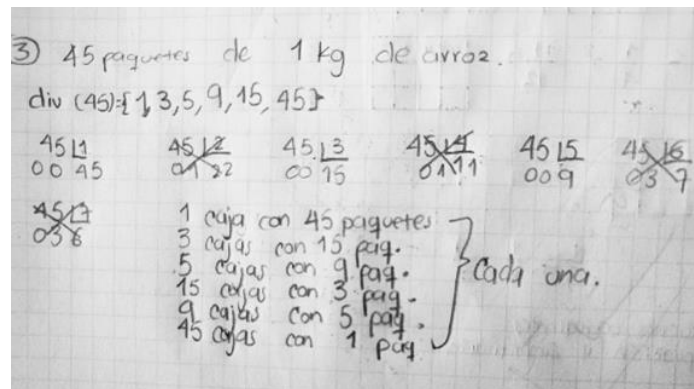 ③ 45 paquetes de 1 kg de arroz.
div (45)={1,3,5,9,15,45}
45 1 45 2 45 3 45 4 45 5 45 6
00 45 01 22 00 15 01 11 00 9 03 7
45 7
03 6
1 caja con 45 paquetes
3 cajas con 15 paq.
5 cajas con 9 paq.
15 cajas con 3 paq.
9 cajas con 5 paq.
45 cajas con 1 paq
Cada una.